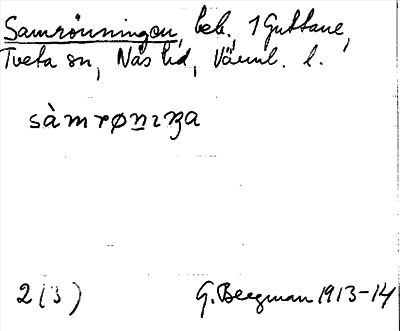 Samrönningen, beb., 1 Guttane,
Tveta sn, Näs hd, Värml. l.
sàmrøniŋa
2 (3) G. Bergman 1913-14